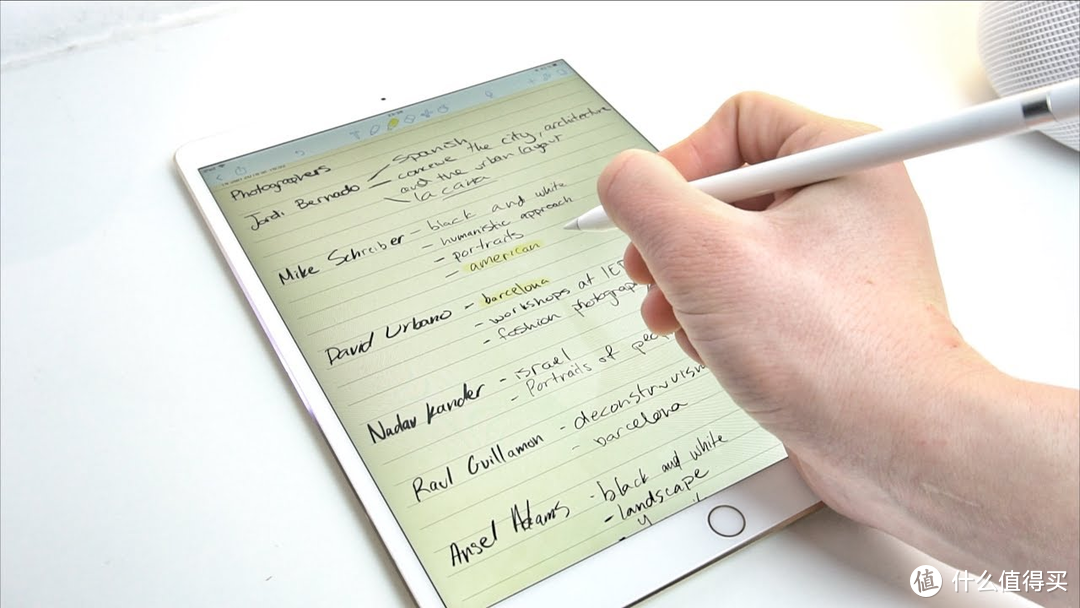 Photographers
Jordi Bernado
Spanish
conceive the city, architecture
and the urban layout
la casa
Mike Schreiber - black and white
- humanistic approach
- portraits
- american
David Urbano - barcelona
- workshops at
- fashion
Nadav Kander - israel
- Portraits of
Raul Guillamon -
- barcelona
Ansel Adams - black and white
- landscape
值 什么值得买